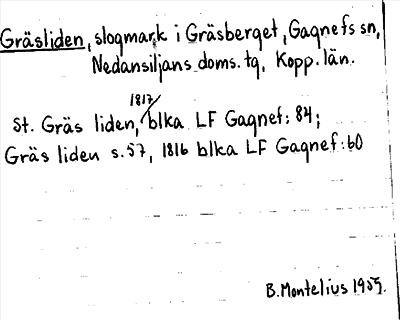 Gräsliden, slogmark i Gräsberget, Gagnefs sn,
Nedansiljans doms. tg, Kopp. län.
1817
St. Gräs liden, blka LF Gagnef: 84;
Gräs liden s. 57, 1816 blka LF Gagnef: 60
B. Montelius 1955.